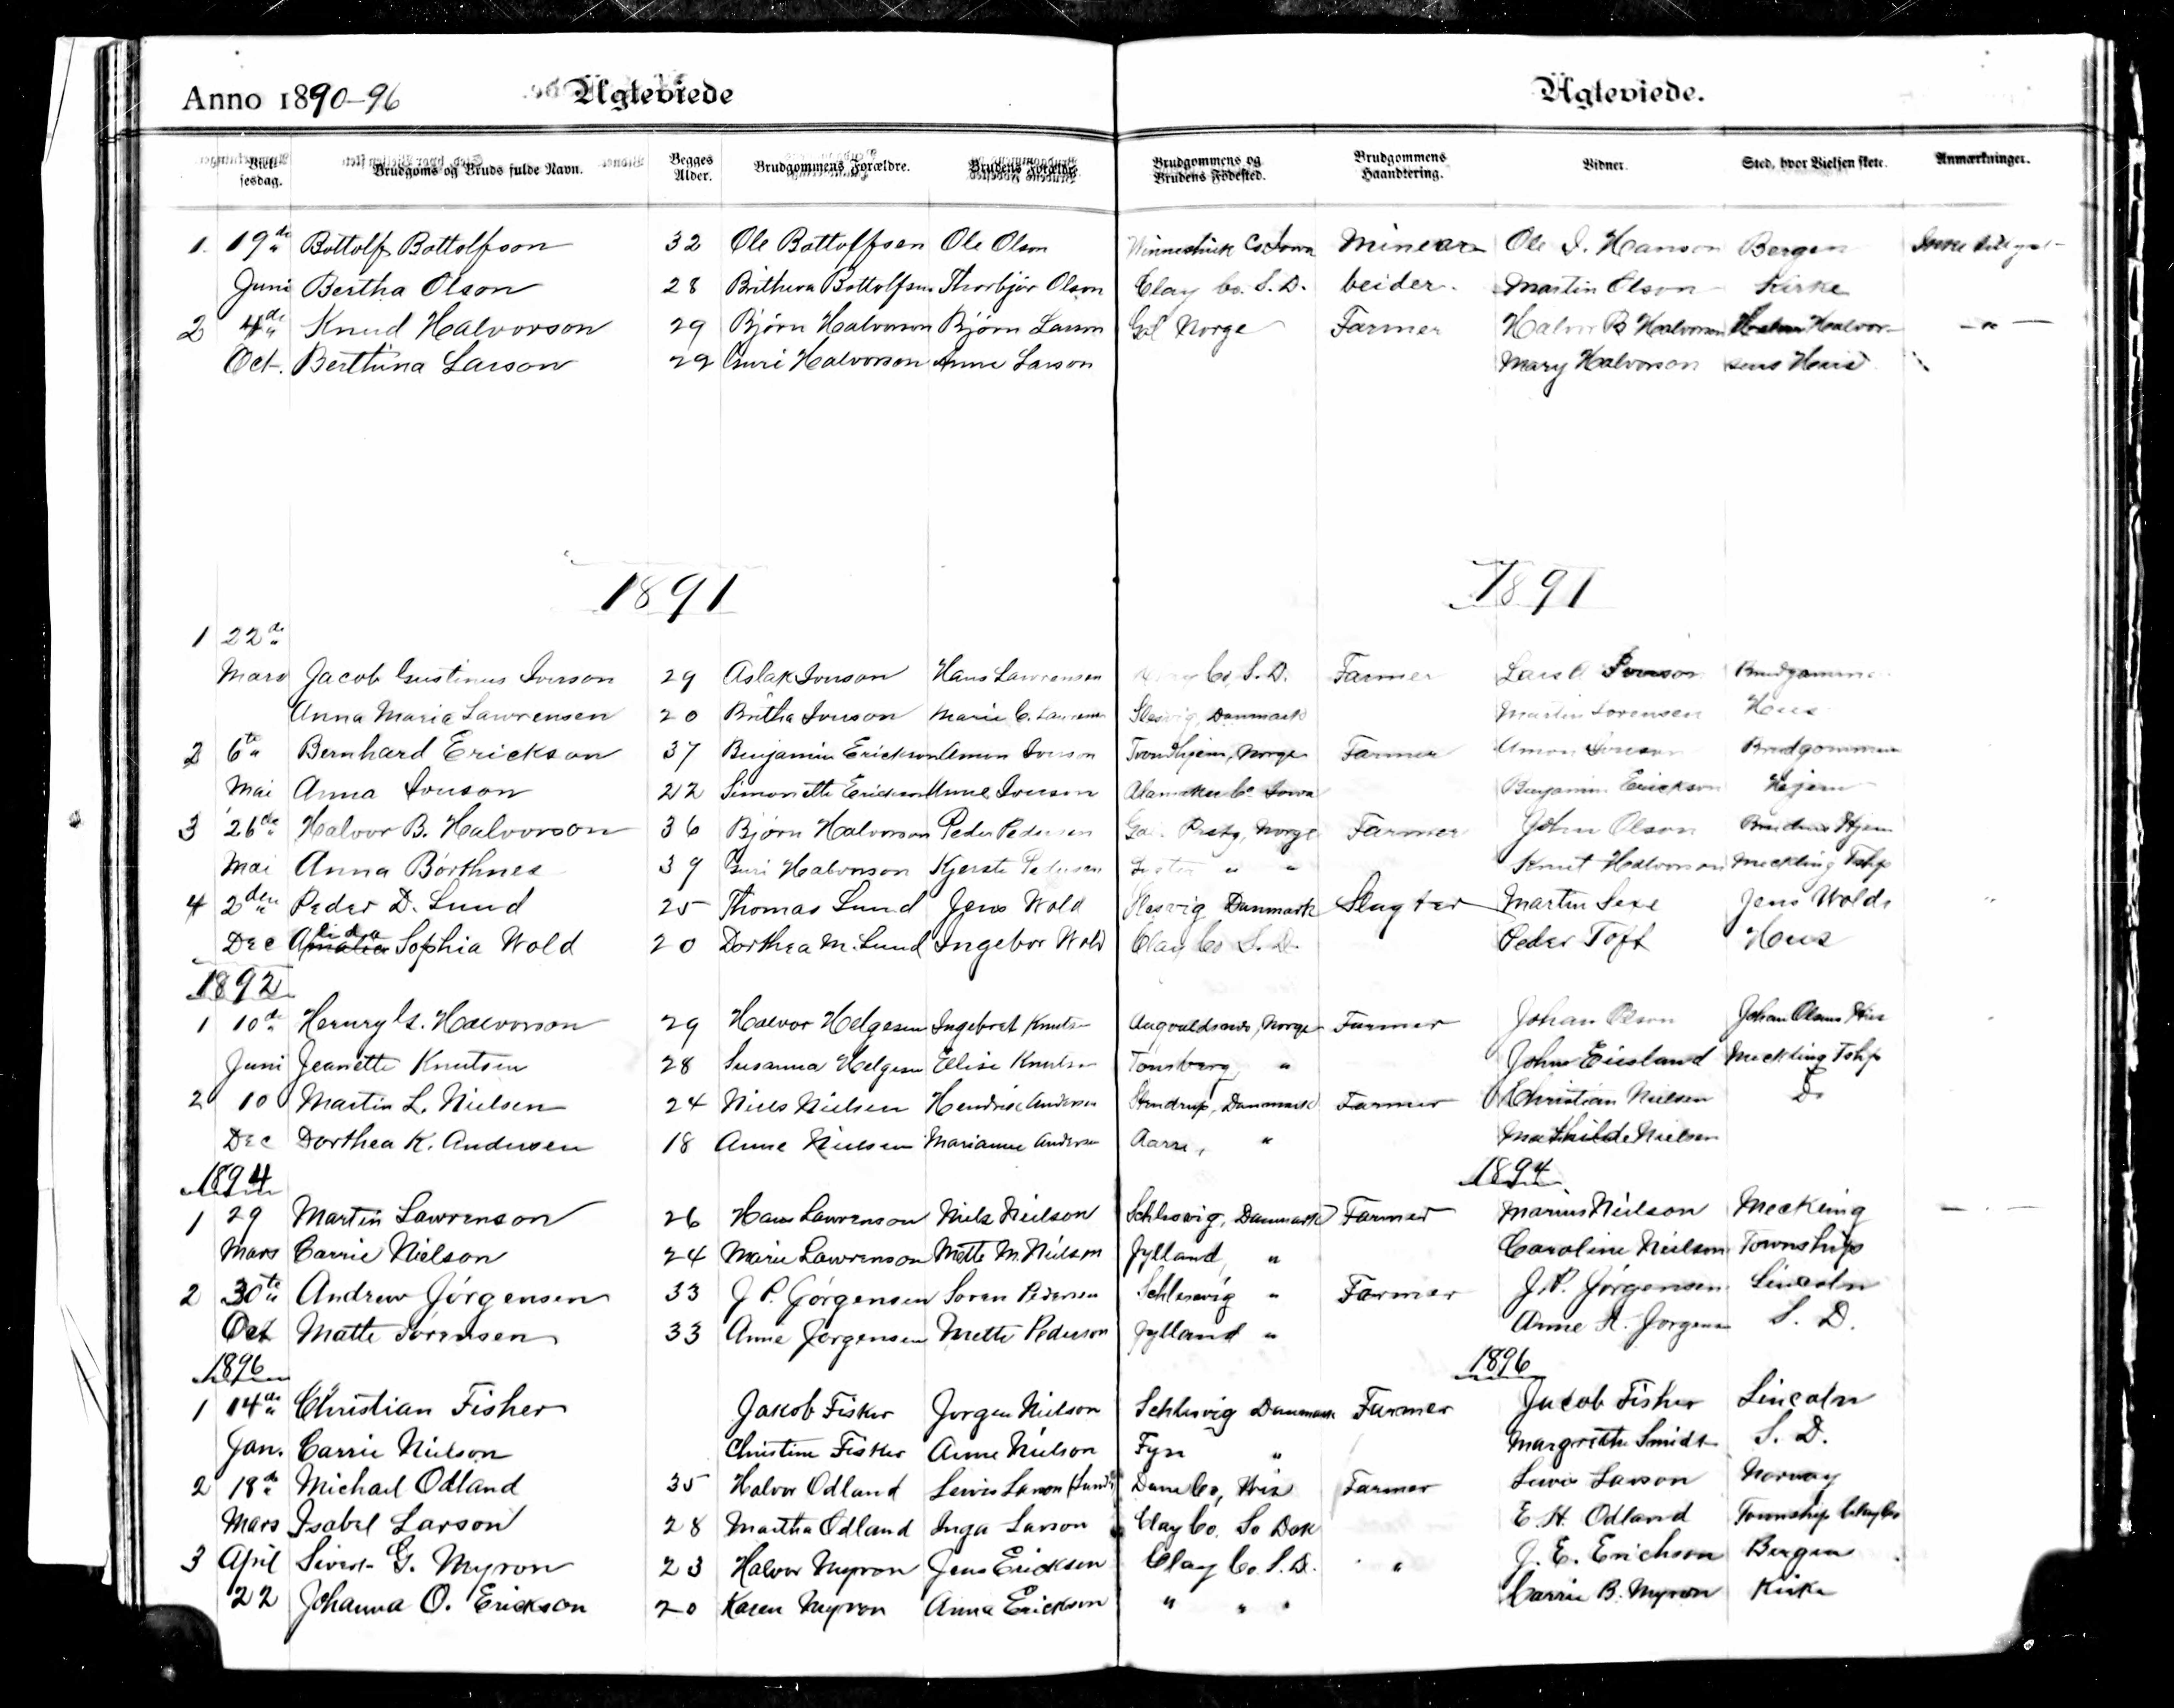 Anno 1890-96 Ægteviede Ægteviede.
Viel- sesdag. Brudgoms og Bruds fulde Navn. Begges Alder. Brudgommens Forældre. Brudens Forældre Brudgommens og Brudens Födested. Brudgommens Haandtering. Vidner. Sted, hvor Vielsen skete. Anmærkninger.
1. 19de Bottolf Bottolfson 32 Ole Bottolfsen Ole Olson Winneshiek Co Iowa Minear Ole I. Hanson Bergen
Juni Bertha Olson 28 Britheva Bottolfsen Thorbjør Olson Clay Co. S. D. beider. Martin Olson Kirke
2 4de Knud Halvorson 29 Bjørn Halvorson Bjørn Larson Gol Norge Farmer Halvor B Halvorson Halvor Halvor- -"-
Oct. Berthina Larson 29 Guri Halvorson Anne Larson Mary Halvorson sens Huus
1891 1891
1 22de
Mars Jacob Gustinus Iverson 29 Aslak Iverson Hans Lawrensen Co, S. D. Farmer Lars A Iverson Brudgommens
Anna Maria Lawrensen 20 Britha Iverson Marie C. Lawrensen Slesvig, Danmark Martin Lorensen Hus
2 6te Bernhard Erickson 37 Benjamin Erickson Amon Iverson Trondhjem, Norge Farmer Amon Iverson Brudgommens
Mai Anna Iverson 22 Simonette Erickson Anne Iverson Alamakee Co Iowa Benjamin Erickson Hjem
3 26de Halvor B. Halvorson 36 Bjørn Halvorson Peder Pedersen Gol Prstg, Norge Farmer John Olson Brudens Hjem
Mai Anna Börthnes 39 Guri Halvorson Kjersti Pedersen " " Knut Halvorson Meckling Tshp
4 2den Peder D. Lund 25 Thomas Lund Jens Wold Slesvig Danmark Slagter Martin Sexe Jens Wolds "
Dec Alida Sophia Wold 20 Dorthea M. Lund Ingebor Wold Clay Co S. D. Peder Toft Hus
1892
1 10de Henry G. Halvorson 29 Halvor Helgesen Ingebret Knutsen Augvaldsnes, Norge Farmer Johan Olson Johan Olsens Hus
Juni Jeanette Knutsen 28 Susanna Helgesen Ellise Knutsen Tonsberg " John Eiesland Meckling Tshp
2 10 Martin L. Nielsen 24 Niels Nielsen Hendrik Andersen Stendrup, Danmark Farmer Christian Nielsen Do
Dec Dorthea K. Andersen 18 Anne Nielsen Marianne Andersen Aarre, " Mathilde Nielsen
1894 1894
1 29 Martin Lawrenson 26 Hans Lawrenson Niels Neilson Schlesvig, Danmark Farmer Marius Neilson Meckling
Mars Carrie Nielson 24 Marie Lawrenson Mette M. Neilson Jylland, " Caroline Neilson Township
2 30te Andrew Jörgensen 33 J P. Jörgensen Soren Pedersen Schlesvig " Farmer J. P. Jörgensen Lincoln
Oct Matte Sorensen 33 Anne Jørgensen Mette Pederson Jylland " Anne K. Jorgensen S. D.
1896 1896
1 14de Christian Fisher Jakob Fisker Jorgen Nielson Schlesvig Danmark Farmer Jacob Fisher Lincoln
Jan. Carrie Nielson Christine Fisker Anne Nielson Fyn " Margrethe Smidt S. D.
2 18de Michael Odland 35 Halvor Odland Lewis Larson Dane Co, Wis Farmer Lewis Larson Norway
Mars Isabel Larson 28 Martha Odland Inga Larson Clay Co. So Dak E. H. Odland Township Clay Co
3 April Sivert G. Myron 23 Halvor Myron Jens Erickson Clay Co. S. D. " J. E. Erickson Bergen
22 Johanna O. Erickson 20 Karen Myron Anna Erickson " " " Carrie B. Myron Kirke